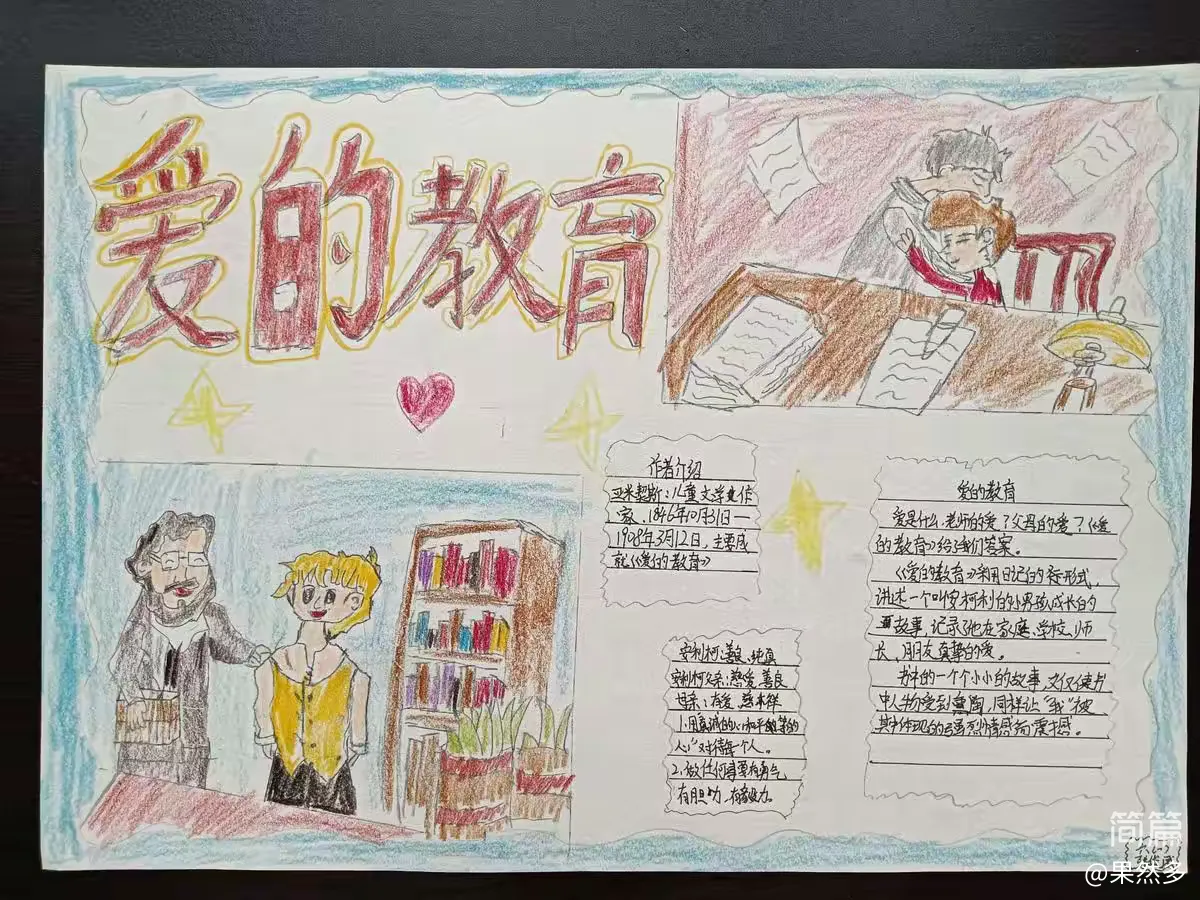 爱的教育
作者介绍
亚米契斯：儿童文学作
家，1846年10月31日—
1908年3月12日，主要成
就《爱的教育》
爱的教育
爱是什么，老师的爱？父母的爱？《爱
的教育》给了我们答案。
《爱的教育》采用日记的形式，
讲述一个叫安柯利的小男孩成长的
故事，记录了他在家庭、学校、师
长、朋友真挚的爱。
书本的一个个小小的故事，不仅使书
中人物受到熏陶，同样让“我”被
其中体现的强烈情感而震撼。
安利柯：善良、纯真
安利柯父亲：慈爱、善良
母亲：有爱、慈木祥
1.用真诚的心和平等的
人心”对待每一个人。
2.做任何事要有勇气
有胆力，有毅力。
简篇
@果然多